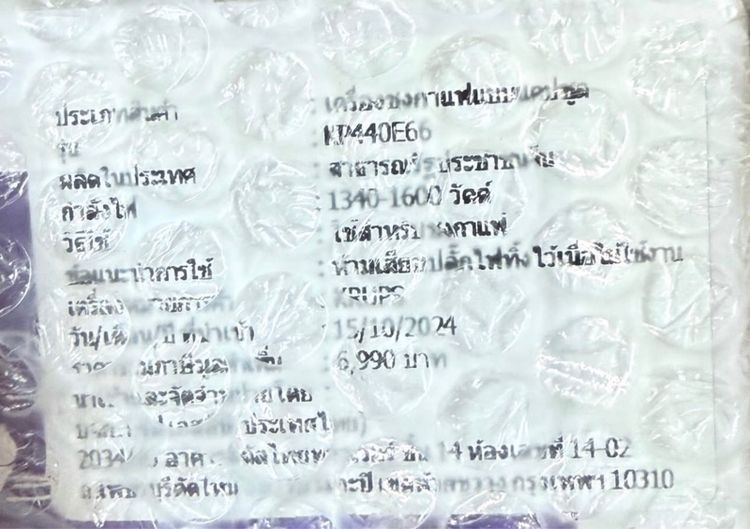 ประเภทสินค้า : เครื่องชงกาแฟแบบแคปซูล
รุ่น : KP440E66
ผลิตในประเทศ : สาธารณรัฐประชาชนจีน
กำลังไฟ : 1340-1600 วัตต์
วิธีใช้ : ใช้สำหรับชงกาแฟ
ข้อแนะนำการใช้ : ห้ามเสียบปลั๊กไฟทิ้งไว้เมื่อไม่ใช้งาน
เครื่องหมายการค้า : KRUPS
วัน/เดือน/ปี ที่นำเข้า : 15/10/2024
ราคารวมภาษีมูลค่าเพิ่ม : 6,990 บาท
นำเข้าและจัดจำหน่ายโดย :
ประเทศไทย)
อาคาร ชั้น 14 ห้องเลขที่ 14-02
กรุงเทพฯ 10310